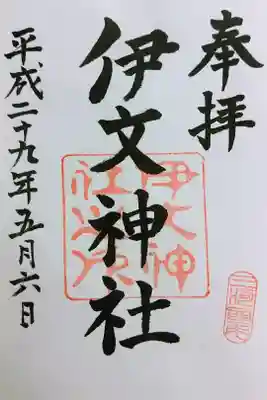 奉拝
伊文神社
平成二十九年五月六日
伊文神
社